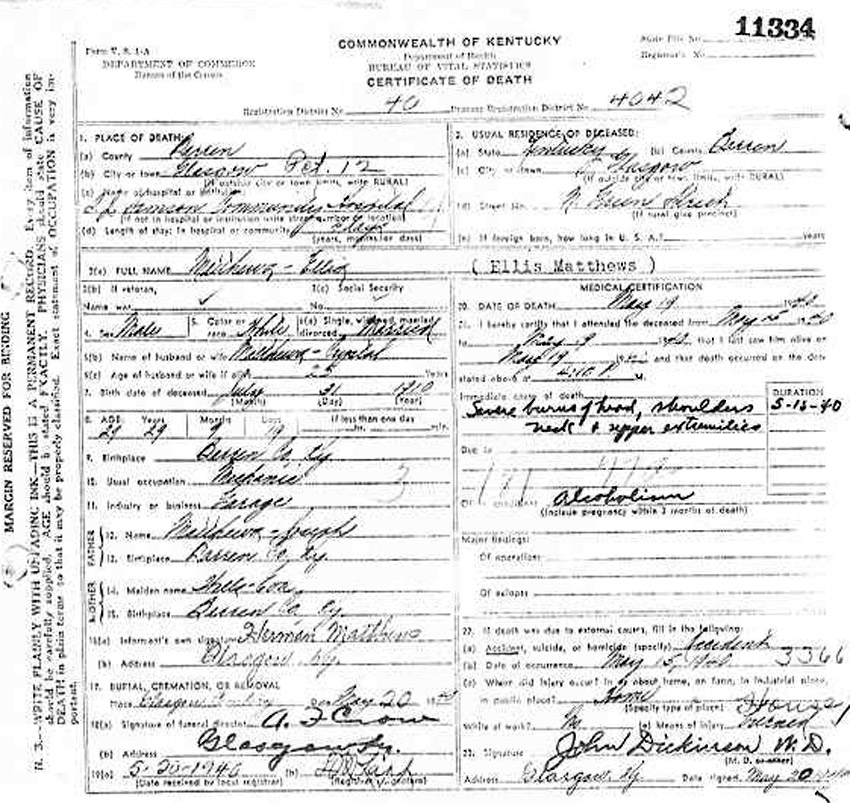 11334
Form V. S. 1-A
COMMONWEALTH OF KENTUCKY
State File No.
DEPARTMENT OF COMMERCE
Department of Health
Registrar's No.
Bureau of the Census
BUREAU OF VITAL STATISTICS
CERTIFICATE OF DEATH
Registration District No. 40 Primary Registration District No. 4042
MARGIN RESERVED FOR BINDING
N. B.—WRITE PLAINLY WITH UNFADING INK—THIS IS A PERMANENT RECORD. Every item of information
should be carefully supplied. AGE should be stated EXACTLY. PHYSICIANS should state CAUSE OF
DEATH in plain terms so that it may be properly classified. Exact statement of OCCUPATION is very im-
portant.
1. PLACE OF DEATH:
(a) County Barren
(b) City or town Glasgow Pct. 12
(If outside city or town limits, write RURAL)
(c) Name of hospital or institution
T J Samson Community Hospital
(If not in hospital or institution write street number or location)
(d) Length of stay: In hospital or community days
(years, months or days)
2. USUAL RESIDENCE OF DECEASED:
(a) State Kentucky (b) County Barren
(c) City or town Glasgow
(If outside city or town limits, write RURAL)
(d) Street No. N. Green Street
(If rural give precinct)
(e) If foreign born, how long in U. S. A.? years
3(a) FULL NAME Matthews - Ellis ( Ellis Matthews )
3(b) If veteran, 3(c) Social Security
Name war No.
4. Sex Male 5. Color or race White 6(a) Single, widowed, married, divorced Married
6(b) Name of husband or wife Matthews - Crystal
6(c) Age of husband or wife if alive 25 Years
7. Birth date of deceased July 31 1910
(Month) (Day) (Year)
8. AGE: Years Months Days If less than one day
29 29 19 hr. min.
9. Birthplace Barren Co, Ky.
10. Usual occupation Mechanic
11. Industry or business Garage
FATHER
12. Name Matthews - Joseph
13. Birthplace Barren Co, Ky.
MOTHER
14. Maiden name
15. Birthplace Barren Co, Ky.
16(a) Informant's own signature Herman Matthews
(b) Address Glasgow, Ky.
17. BURIAL, CREMATION, OR REMOVAL
Place Glasgow on May 20 1940
18(a) Signature of funeral director A. F. Crow
(b) Address Glasgow, Ky.
19(a) 5-20-1940 (b)
(Date received by local registrar) (Registrar's signature)
MEDICAL CERTIFICATION
20. DATE OF DEATH May 19 1940
21. I hereby certify that I attended the deceased from May 15 1940
to May 19 1940, that I last saw him alive on
May 19 1940 and that death occurred on the date
stated above at 4:10 P M.
Immediate cause of death DURATION
Severe burns of head, shoulders 5-15-40
neck & upper extremities
Due to
181
Alcoholism
(Include pregnancy within 3 months of death)
Major findings:
Of operations
Of autopsy
22. If death was due to external causes, fill in the following:
(a) Accident, suicide, or homicide (specify) Accident
(b) Date of occurrence May 15 1940 3366
(c) Where did injury occur? In or about home, on farm, in industrial place,
in public place? Home
(Specify type of place) House
While at work? No (e) Means of injury burned
23. Signature John Dickinson M. D.
(M. D. or other)
Address Glasgow, Ky Date signed May 20 1940